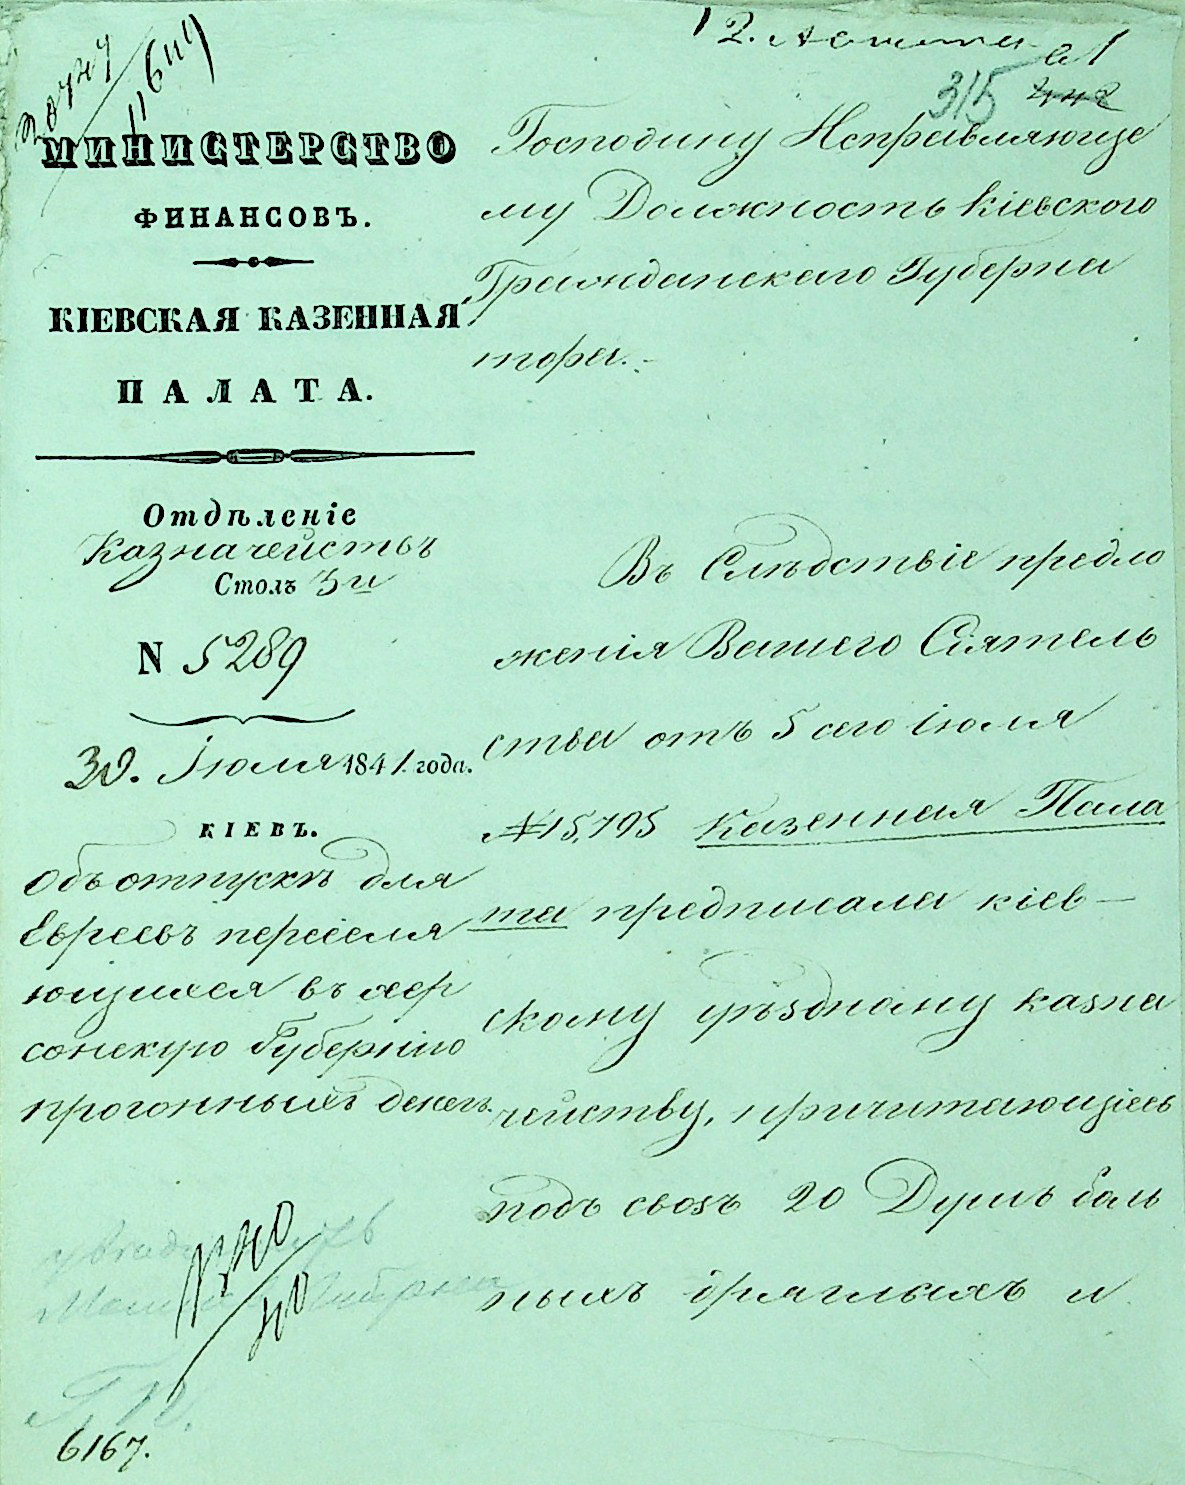 2. Августа
315
442
МИНИСТЕРСТВО
ФИНАНСОВЪ.
КІЕВСКАЯ КАЗЕННАЯ
ПАЛАТА.
Отдѣленіе
Казначействъ
Столъ 3й
N 5289
30. Іюля 1841 года.
КІЕВЪ.
Объ отпускѣ для
Евреевъ переселя
ющихся въ хер
сонскую Губернію
прогонныхъ денегъ.
6167.
Господину Исправляюще
му Должность Кіевского
Гражданскаго Губерна
тора.
Въ Слѣдствіе предло
женія Вашего Сіятель
ства отъ 5 сего іюля
№ 15,795 Казенная Пала
та предписала кіев–
скому уѣздному казна
чейству, причитающіеся
подъ свозъ 20 Душъ боль
ныхъ дряглыхъ и